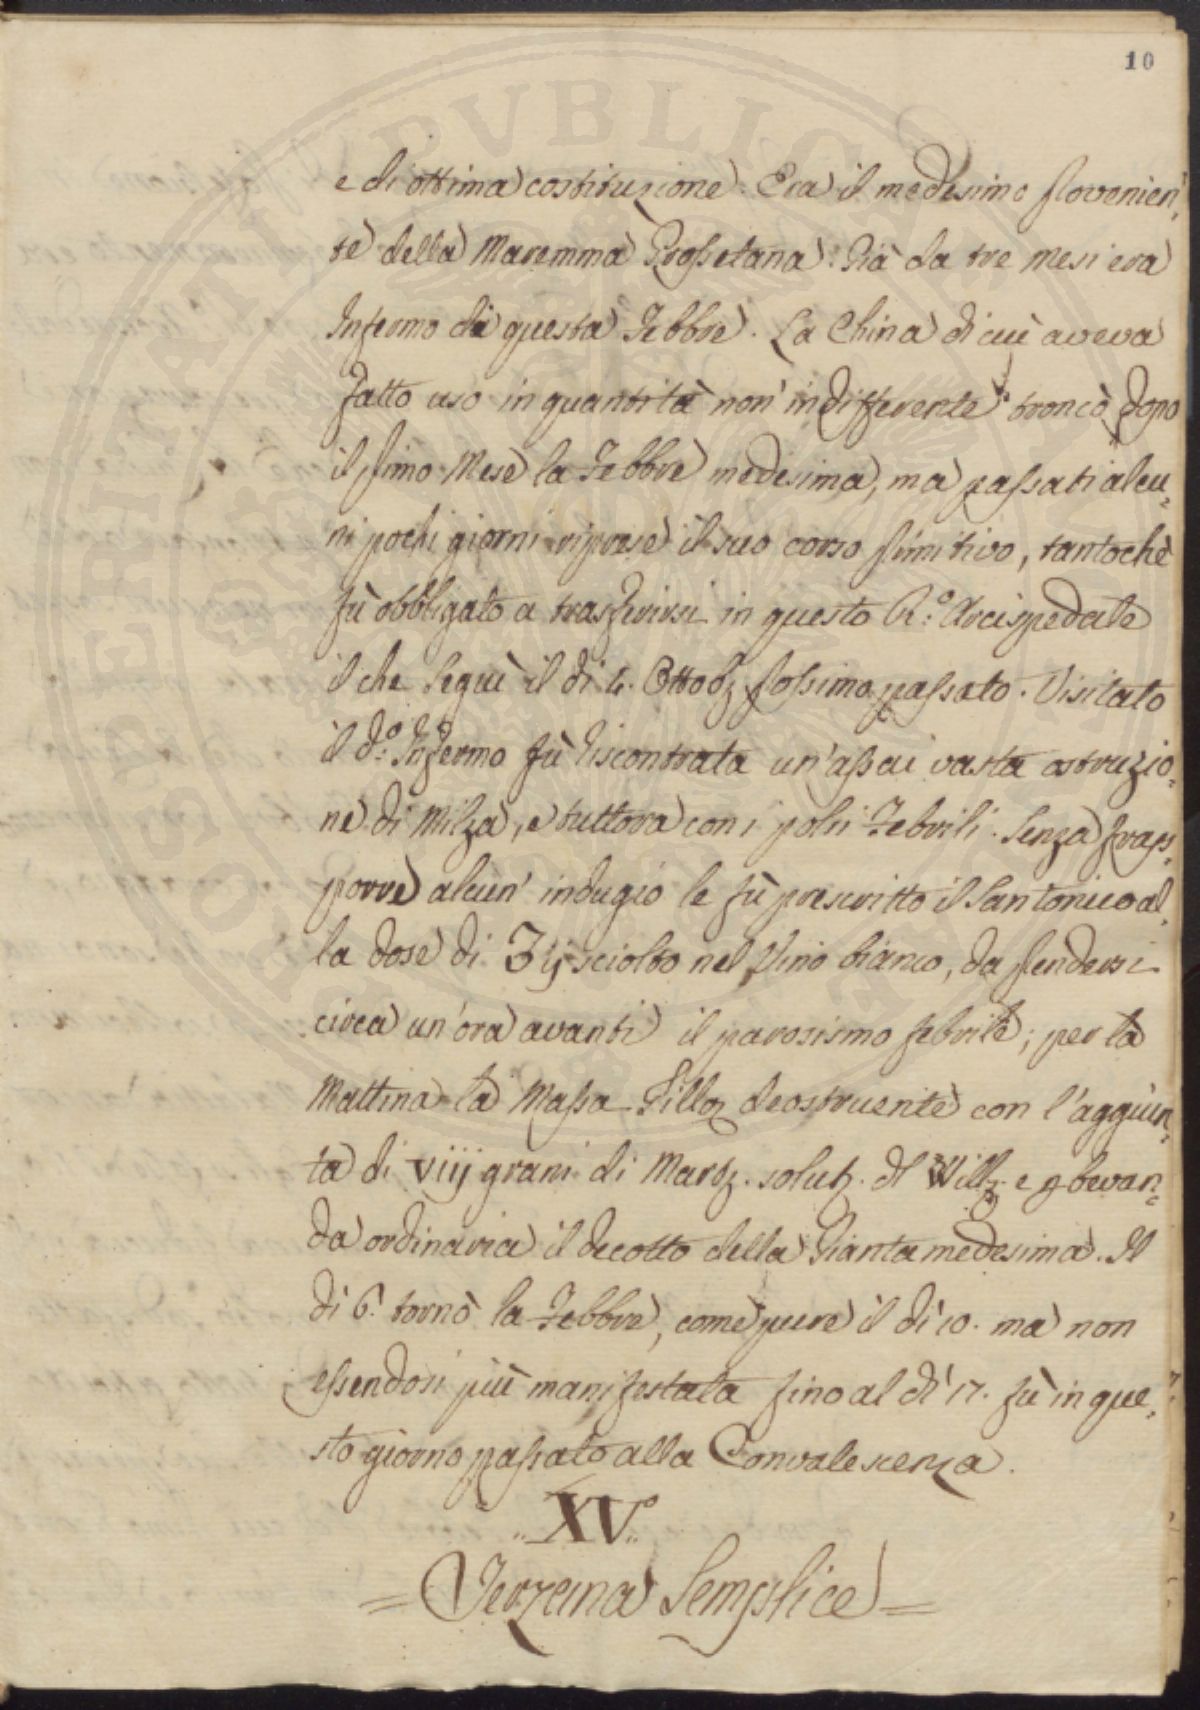 10
e di ottima costituzione. Era il medesimo provenien,
te della Maremma Grossetana. Già da tre mesi era
Infermo di questa Febbre. La China di cui aveva
fatto uso in quantità non indifferente troncò dopo
il primo Mese la Febbre medesima, ma passati alcu=
ni pochi giorni riprese il suo corso primitivo, tantochè
fù obbligato a trasferirsi in questo R.º Arcispedale
il che seguì il dì 4. Ottob. prossimo passato. Visitato
il d.º Infermo fù riscontrata un'assai vasta ostruzio=
ne di Milza, e tuttora con i polsi Febrili. Senza frap=
porre alcun' indugio le fù prescritto il Santonico al,
la dose di ʒij sciolto nel Vino bianco, da prendersi
circa un'ora avanti il parosismo febrile; per la
Mattina la Massa Pillo deostruente con l'aggiun,
ta di viij grani di Mart. solub. del Will. e p bevan=
da ordinaria il decotto della Pianta medesima. Il
dì 6. tornò la Febbre, come pure il dì 10. ma non
essendosi più manifestata fino al dì 17. fù in que,
sto giorno passato alla Convalescenza.
XVº
= Terzana Semplice =